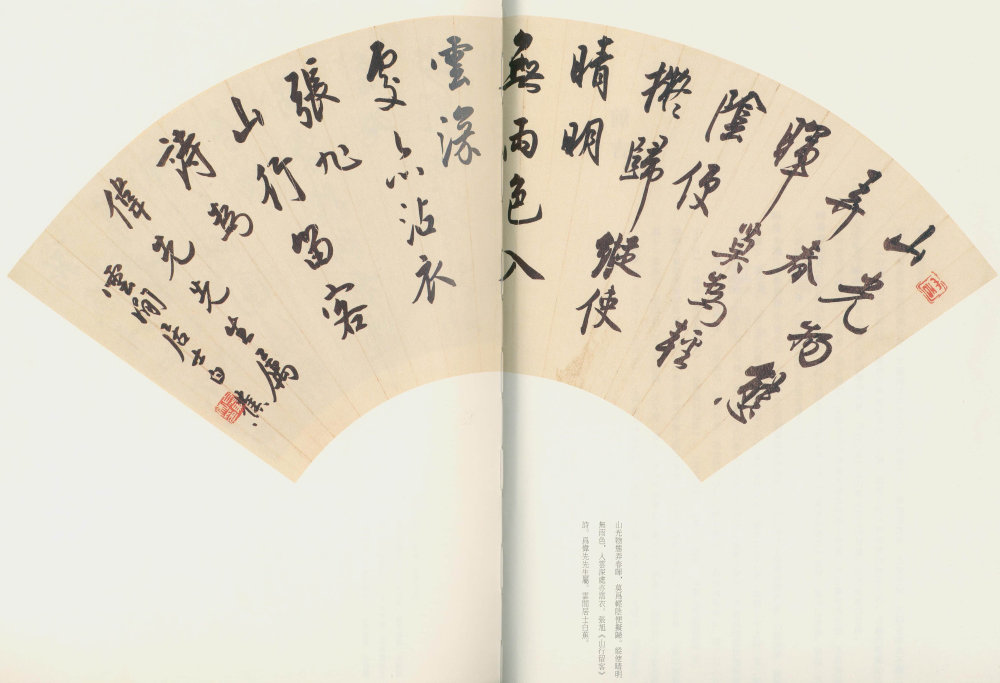 山光物態
弄春
暉莫為輕
陰便
擬歸縱使
晴明
無雨色入
雲深
處亦沾衣
張旭
山行留客
詩為
偉先先生屬
雲間居士白蕉
山光物態弄春暉，莫爲輕陰便擬歸。縱使晴明
無雨色，入雲深處亦沾衣。張旭《山行留客》
詩。爲偉先先生屬。雲間居士白蕉。